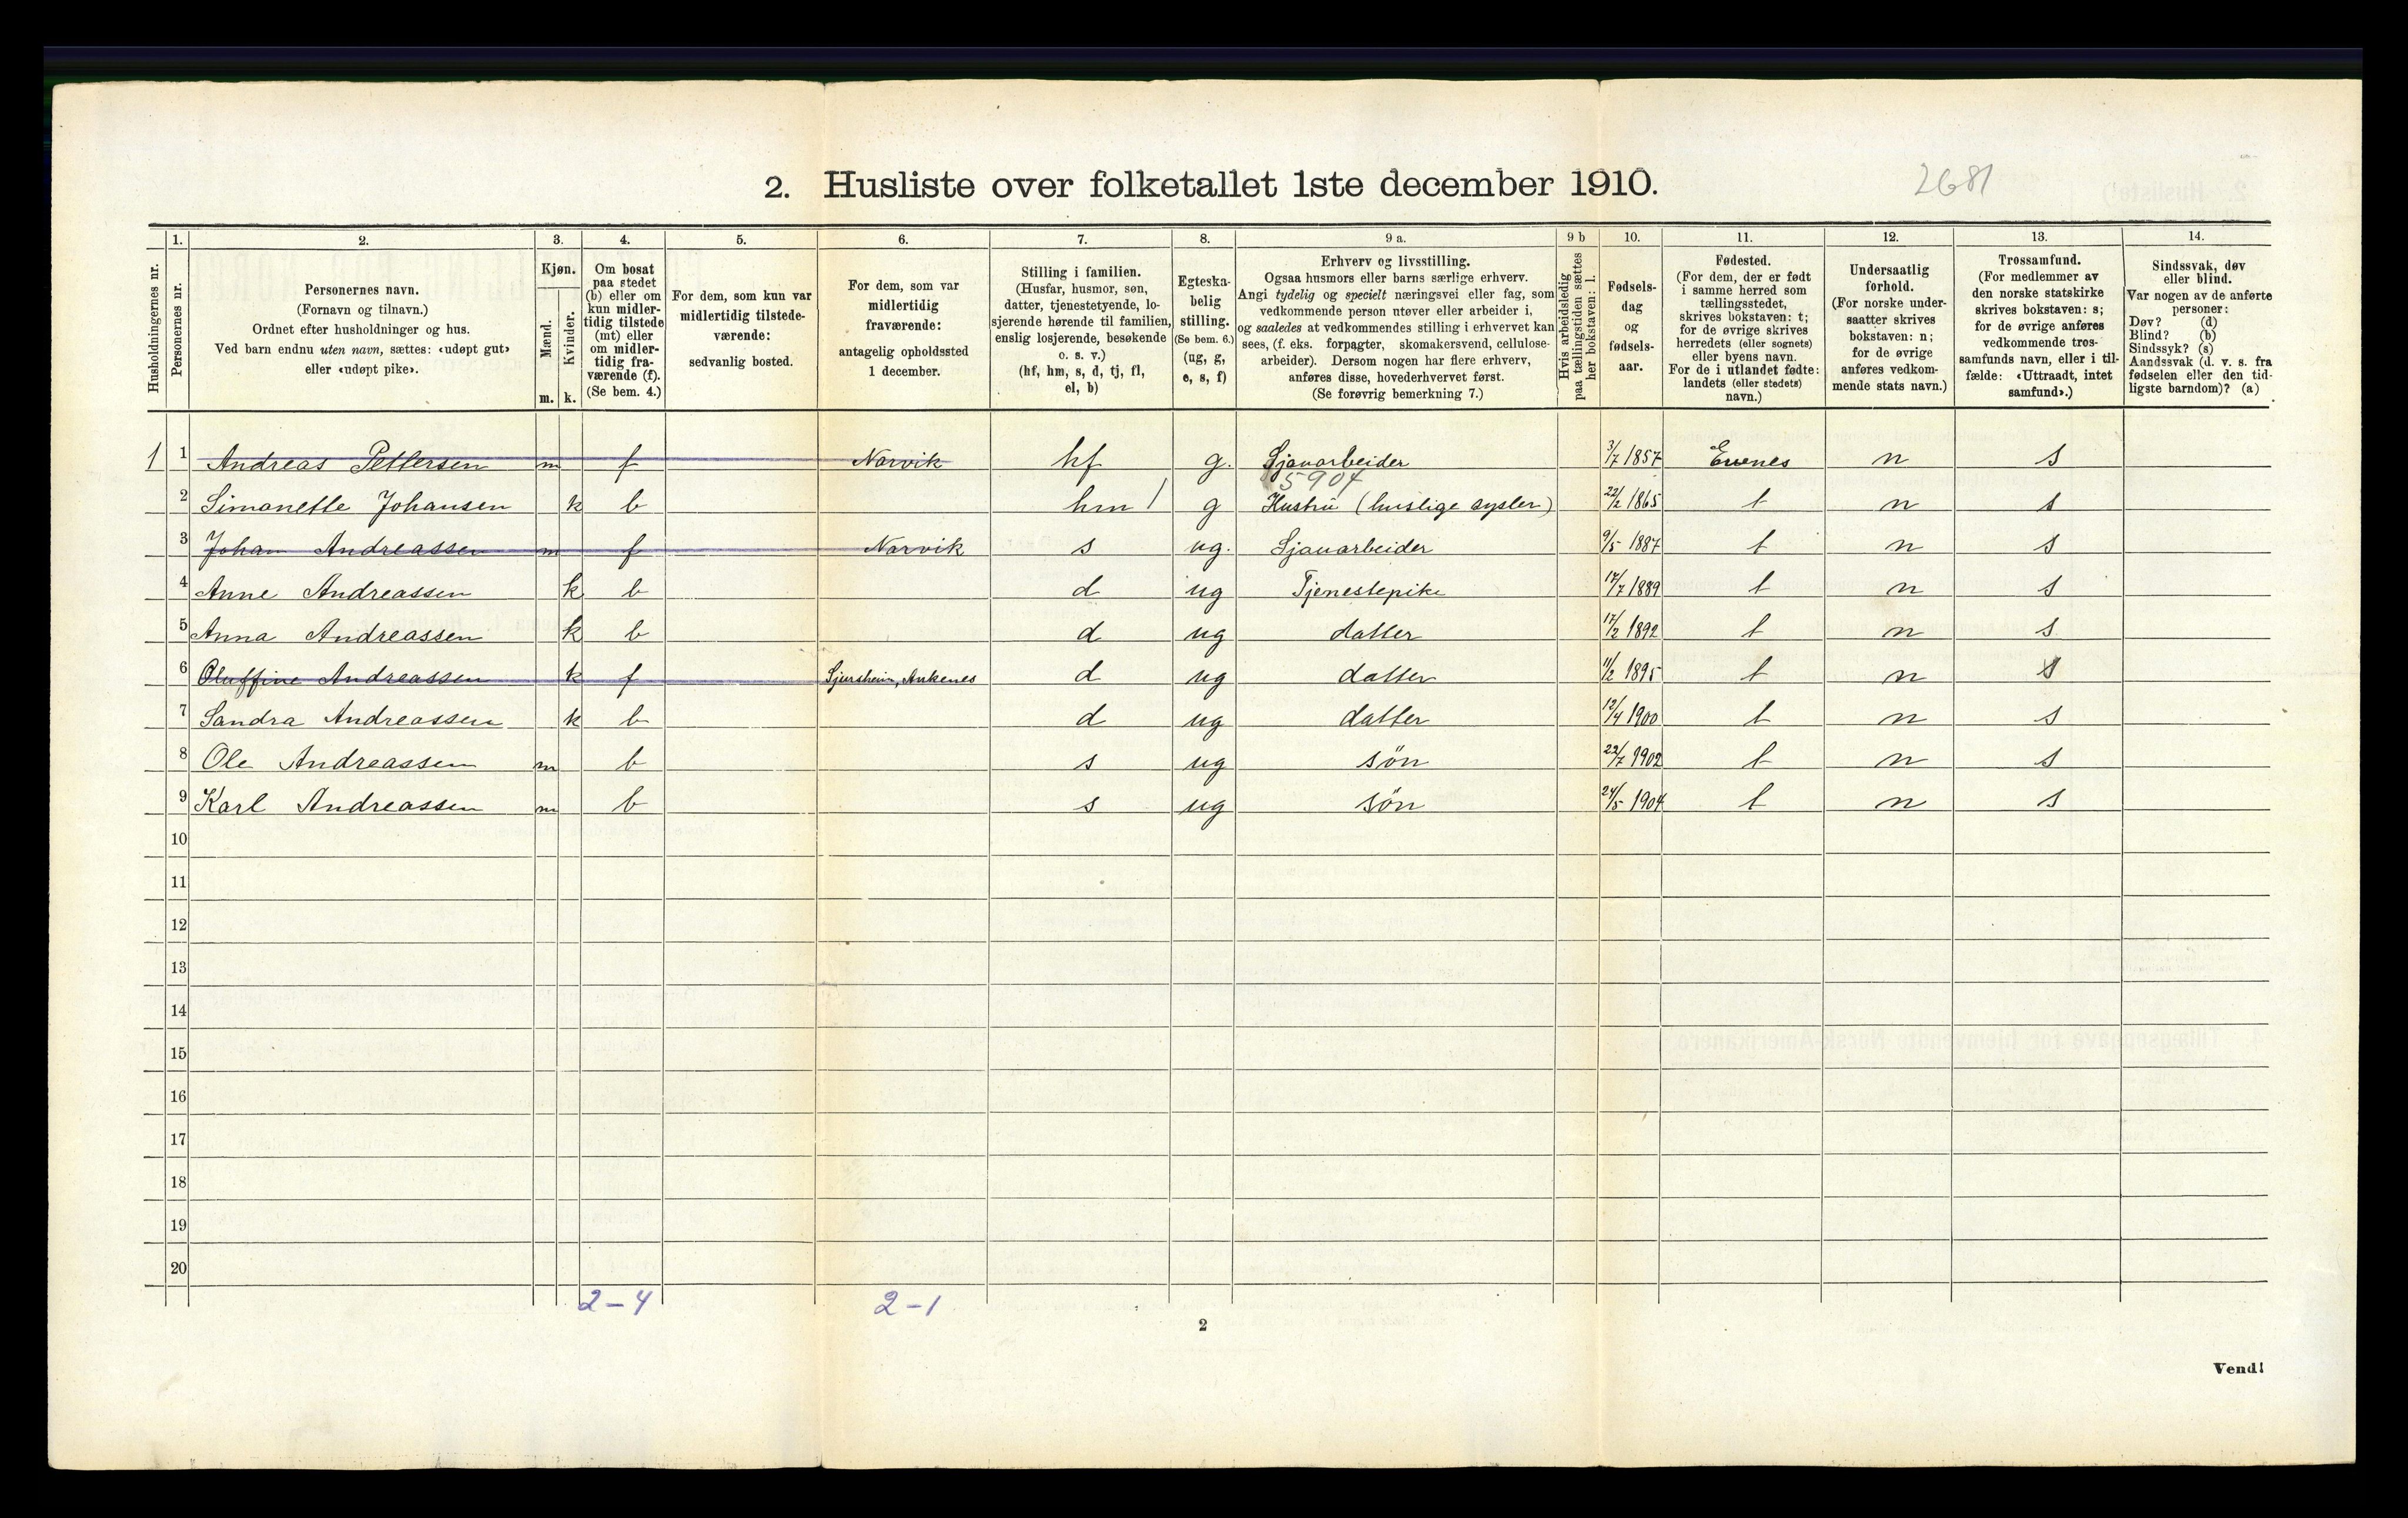 2. Husliste over folketallet 1ste december 1910.
2681
Husholdningernes nr.
1.
Personernes nr.
2.
Personernes navn.
(Fornavn og tilnavn.)
Ordnet efter husholdninger og hus.
Ved barn endnu uten navn, sættes: «udøpt gut»
eller «udøpt pike».
3.
Kjøn.
Mænd. Kvinder.
m. k.
4.
Om bosat
paa stedet
(b) eller om
kun midler-
tidig tilstede
(mt) eller
om midler-
tidig fra-
værende (f).
(Se bem. 4.)
5.
For dem, som kun var
midlertidig tilstede-
værende:
sedvanlig bosted.
6.
For dem, som var
midlertidig
fraværende:
antagelig opholdssted
1 december.
7.
Stilling i familien.
(Husfar, husmor, søn,
datter, tjenestetyende, lo-
sjerende hørende til familien,
enslig losjerende, besøkende
o. s. v.)
(hf, hm, s, d, tj, fl,
el, b)
8.
Egteska-
belig
stilling.
(Se bem. 6.)
(ug, g,
e, s, f)
9 a.
Erhverv og livsstilling.
Ogsaa husmors eller barns særlige erhverv.
Angi tydelig og specielt næringsvei eller fag, som
vedkommende person utøver eller arbeider i,
og saaledes at vedkommendes stilling i erhvervet kan
sees, (f. eks. forpagter, skomakersvend, cellulose-
arbeider). Dersom nogen har flere erhverv,
anføres disse, hovederhvervet først.
(Se forøvrig bemerkning 7.)
9 b
Hvis arbeidsledig
paa tællingstiden sættes
her bokstaven: l.
10.
Fødsels-
dag
og
fødsels-
aar.
11.
Fødested.
(For dem, der er født
i samme herred som
tællingsstedet,
skrives bokstaven: t;
for de øvrige skrives
herredets (eller sognets)
eller byens navn.
For de i utlandet fødte:
landets (eller stedets)
navn.)
12.
Undersaatlig
forhold.
(For norske under-
saatter skrives
bokstaven: n;
for de øvrige
anføres vedkom-
mende stats navn.)
13.
Trossamfund.
(For medlemmer av
den norske statskirke
skrives bokstaven: s;
for de øvrige anføres
vedkommende tros-
samfunds navn, eller i til-
fælde: «Uttraadt, intet
samfund».)
14.
Sindssvak, døv
eller blind.
Var nogen av de anførte
personer:
Døv? (d)
Blind? (b)
Sindssyk? (s)
Aandssvak (d. v. s. fra
fødselen eller den tid-
ligste barndom)? (a)
1 1 Andreas Pettersen m f Narvik hf g. Sjauarbeider 3/7 1857 Evenes n s
5904
2 Simonette Johansen k b hm / g Hustru (huslige sysler) 22/2 1865 t n s
3 Johan Andreassen m f Narvik s ug. Sjauarbeider 9/5 1887 t n s
4 Anne Andreassen k b d ug Tjenestepike 17/7 1889 t n s
5 Anna Andreassen k b d ug datter 17/2 1892 t n s
6 Oluffine Andreassen k f Sjursheim, Ankenes d ug datter 11/2 1895 t n s
7 Sandra Andreassen k b d ug datter 12/4 1900 t n s
8 Ole Andreassen m b s ug søn 22/7 1902 t n s
9 Karl Andreassen m b s ug søn 24/5 1904 t n s
10
11
12
13
14
15
16
17
18
19
20
2-4 2-1
2
Vend!